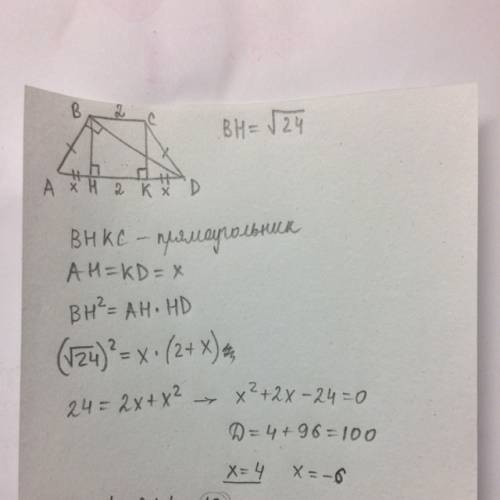 B 2 C
BH = √24
A x H 2 K x D
BHKC – прямоугольник
AH = KD = x
BH² = AH · HD
(√24)² = x · (2 + x)
24 = 2x + x² → x² + 2x – 24 = 0
D = 4 + 96 = 100
x = 4 x = –6